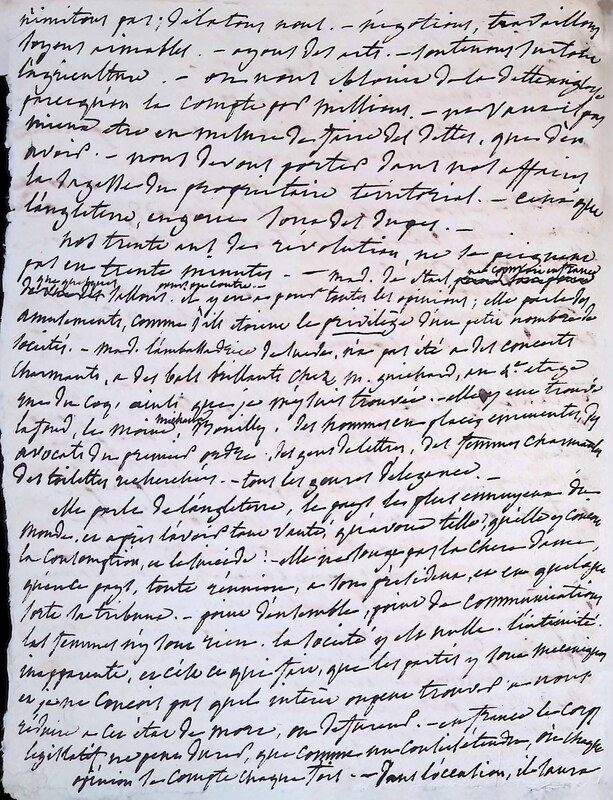 n'imitons pas; dilatons nous. - négotions, travaillons
soyons aimables. - ayons des arts. - soutenons surtout
l'agriculture. - on nous éblouit de la dette anglaise
parcequ'on la compte par millions. - ne vaut il pas
mieux être en mesure de faire des dettes, que d'en
avoir. - nous devons porter dans nos affaires
la sagesse du propriétaire territorial. -
l'angleterre, en guerre sous des dupes. -
nos trente ans de révolution, ne se peignent
pas en trente minutes. - mad. de Stael
quelques salons. pour ou contre. - il y en a pour toutes les opinions; elle parle des
amusements, comme s'ils étoient le privilège d'un petit nombre de
sociétés. - mad. l'ambassadrice de suède, n'a pas été a des concerts
charmants, a des bals brillants chez m. guichard, au 2e étage
rue du Coq ainsi que je m'y suis trouvée. - elle y eut trouvé
le moine, michault, Bouilly, des hommes en places éminentes, des
avocats du premier ordre, des gens de lettres, des femmes charmantes
des toilettes recherchées. - tous les genres d'élégance. -
elle parle de l'angleterre, le pays le plus ennuyeux du
monde, et après l'avoir tant vanté, qu'avoue t'elle? qu'elle y conçoit
la consomption, et le suicide! - elle ne songe pas la chere dame,
qu'en ce pays, toute réunion, a son président, et en quelque
sorte sa tribune. - point d'ensemble, point de communications
les femmes n'y sont rien. la société y est nulle. l'intimité
inapparente, et c'est ce qui fait, que les partis y sont mécaniques
et je ne conçois pas quel intérêt on peut trouver a nous
réduire a cet état de mort, ou de fureur. - en france le corps
législatif, ne peut durer, que comme un conseil étendu, où chaque
opinion se compte chaque fois. - dans l'occasion, il saura